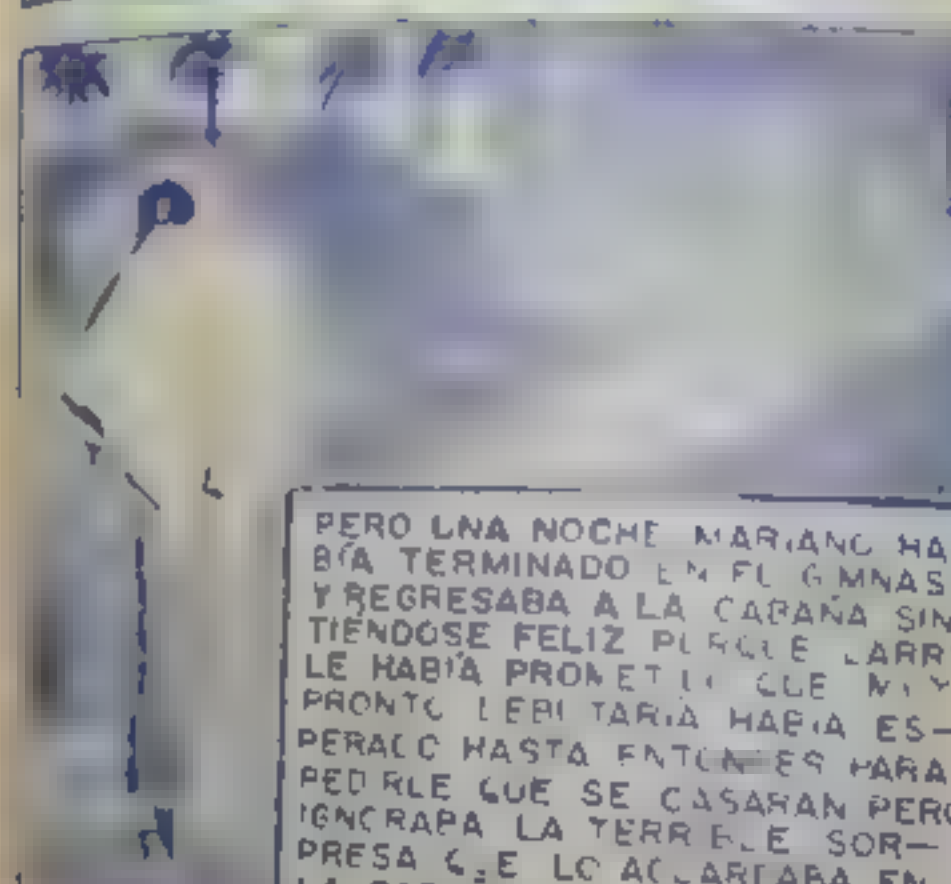 PERO UNA NOCHE MARIANO HA
BÍA TERMINADO EN EL GIMNAS
Y REGRESABA A LA CABAÑA SIN
TIÉNDOSE FELIZ PORQUE LARR
LE HABÍA PROMETIDO QUE MUY
PRONTO DEBUTARÍA HABÍA ES-
PERADO HASTA ENTONCES PARA
PEDIRLE QUE SE CASARAN PERO
IGNORABA LA TERRIBLE SOR-
PRESA QUE LO AGUARDABA EN